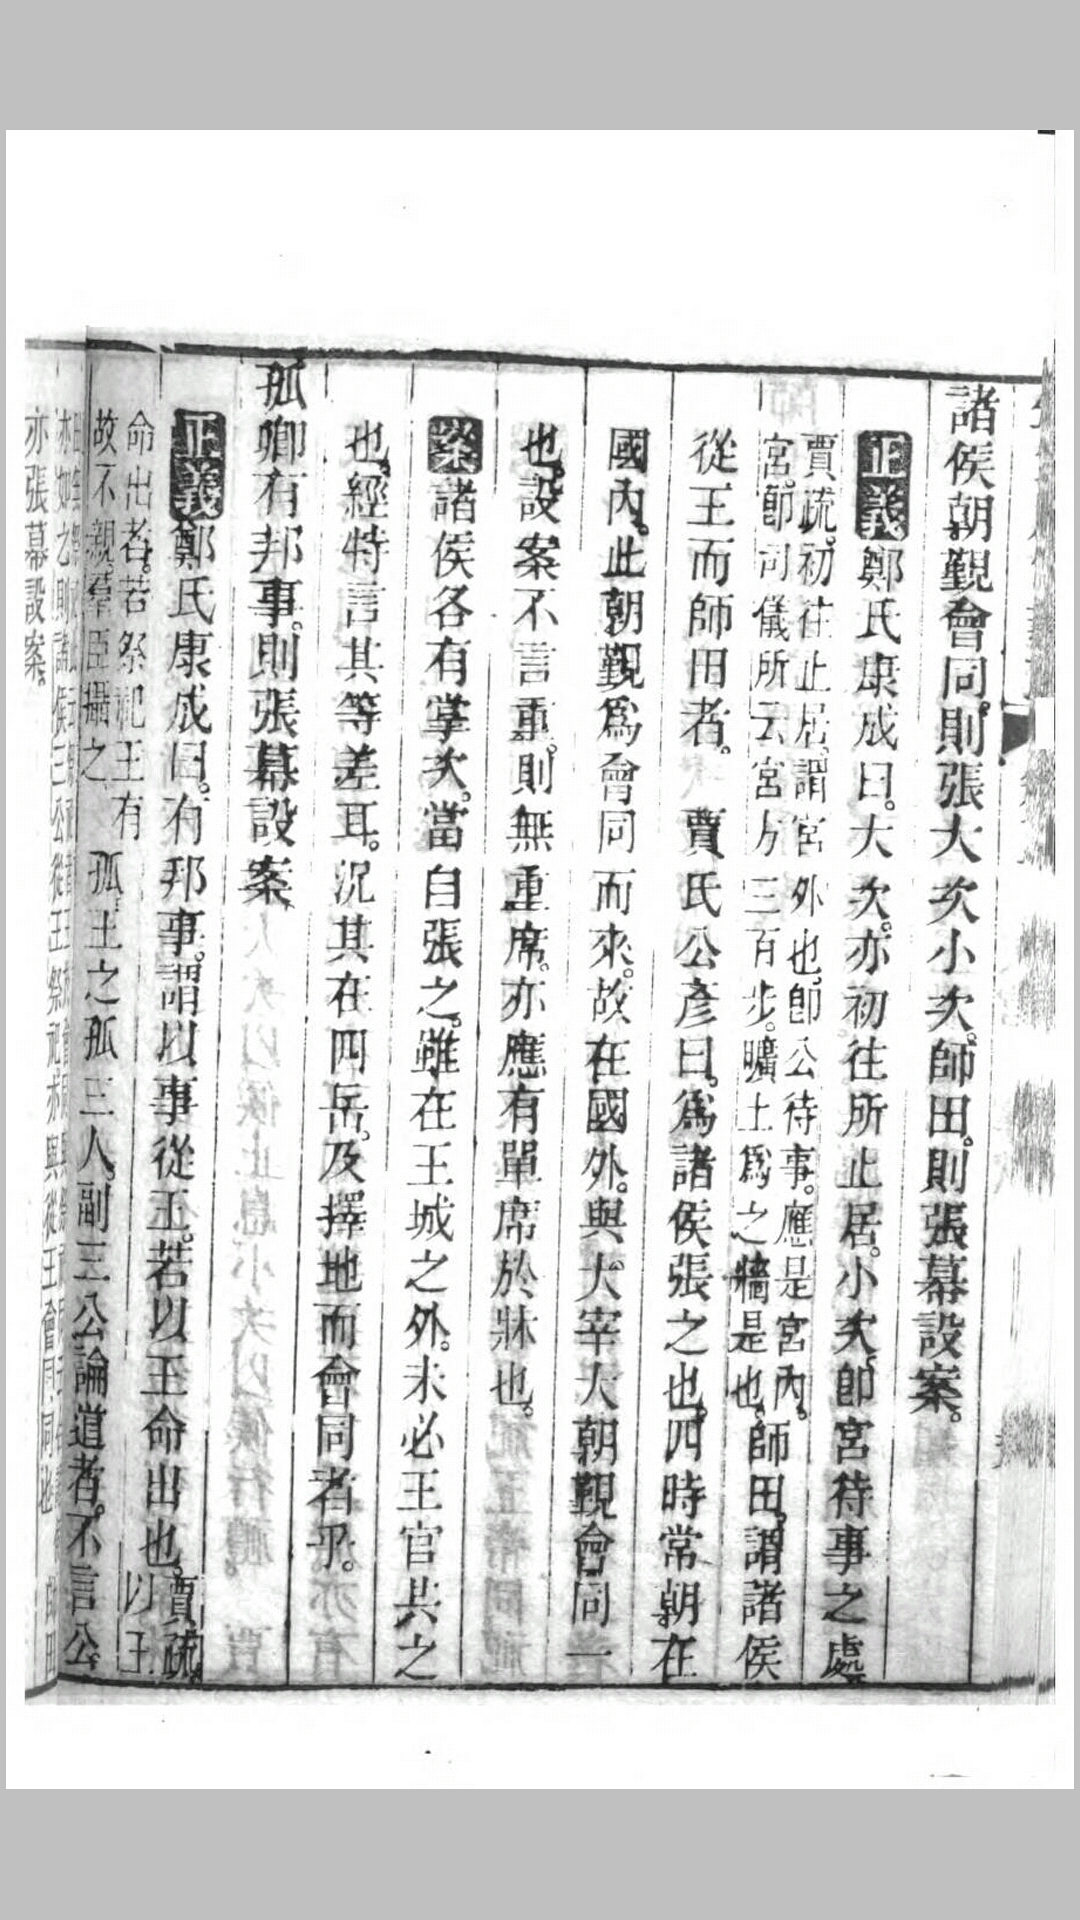 諸侯朝覲會同。則張大次小次。師田。則張幕設案。
正義鄭氏康成曰。大次。亦初往所止居。小次。卽宮待事之處
賈疏。初往止居。謂宮外也。卽公待事。應是宮內。
宮。卽司儀所云宮方三百步。曠土爲之牆是也。師田。謂諸侯
從王而師田者。　賈氏公彥曰。爲諸侯張之也。四時常朝。在
國內。此朝覲爲會同而來。故在國外。與大宰大朝覲會同一
也。設案不言重。則無重席。亦應有單席於牀也。
案諸侯各有掌次。當自張之。雖在王城之外。未必王官共之
也。經特言其等差耳。況其在四岳。及擇地而會同者乎。
孤卿有邦事。則張幕設案
正義鄭氏康成曰。有邦事。謂以事從王。若以王命出也。賈疏。
以王
命出者。若祭祀王有
故不親。羣臣攝之　孤。王之孤三人。副三公論道者。不言公。
亦如之則諸侯三公從王祭祀亦與從王會同同也
亦張幕設案。